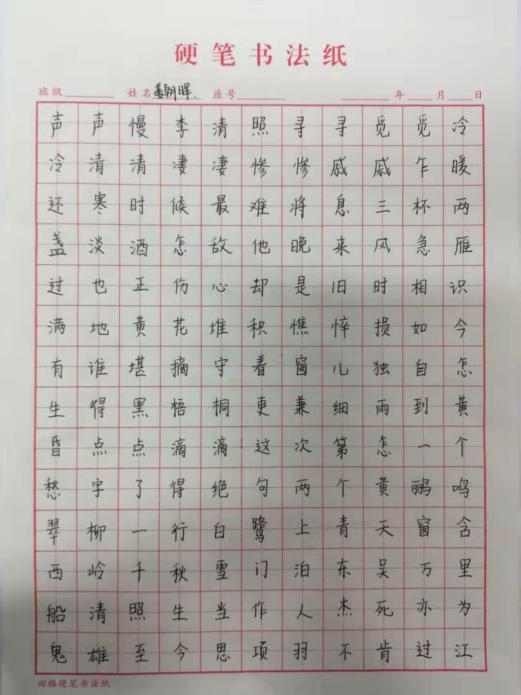 硬笔书法纸
班级 姓名 姜朝晖. 座号 年 月 日
声声慢李清照寻寻觅觅冷
冷清清凄凄惨惨戚戚乍暖
还寒时候最难将息三杯两
盏淡酒怎敌他晚来风急雁
过也正伤心却是旧时相识
满地黄花堆积憔悴损如今
有谁堪摘守着窗儿独自怎
生得黑梧桐更兼细雨到黄
昏点点滴滴这次第怎一个
愁字了得绝句两个黄鹂鸣
翠柳一行白鹭上青天窗含
西岭千秋雪门泊东吴万里
船清照生当作人杰死亦为
鬼雄至今思项羽不肯过江
田格硬笔书法纸